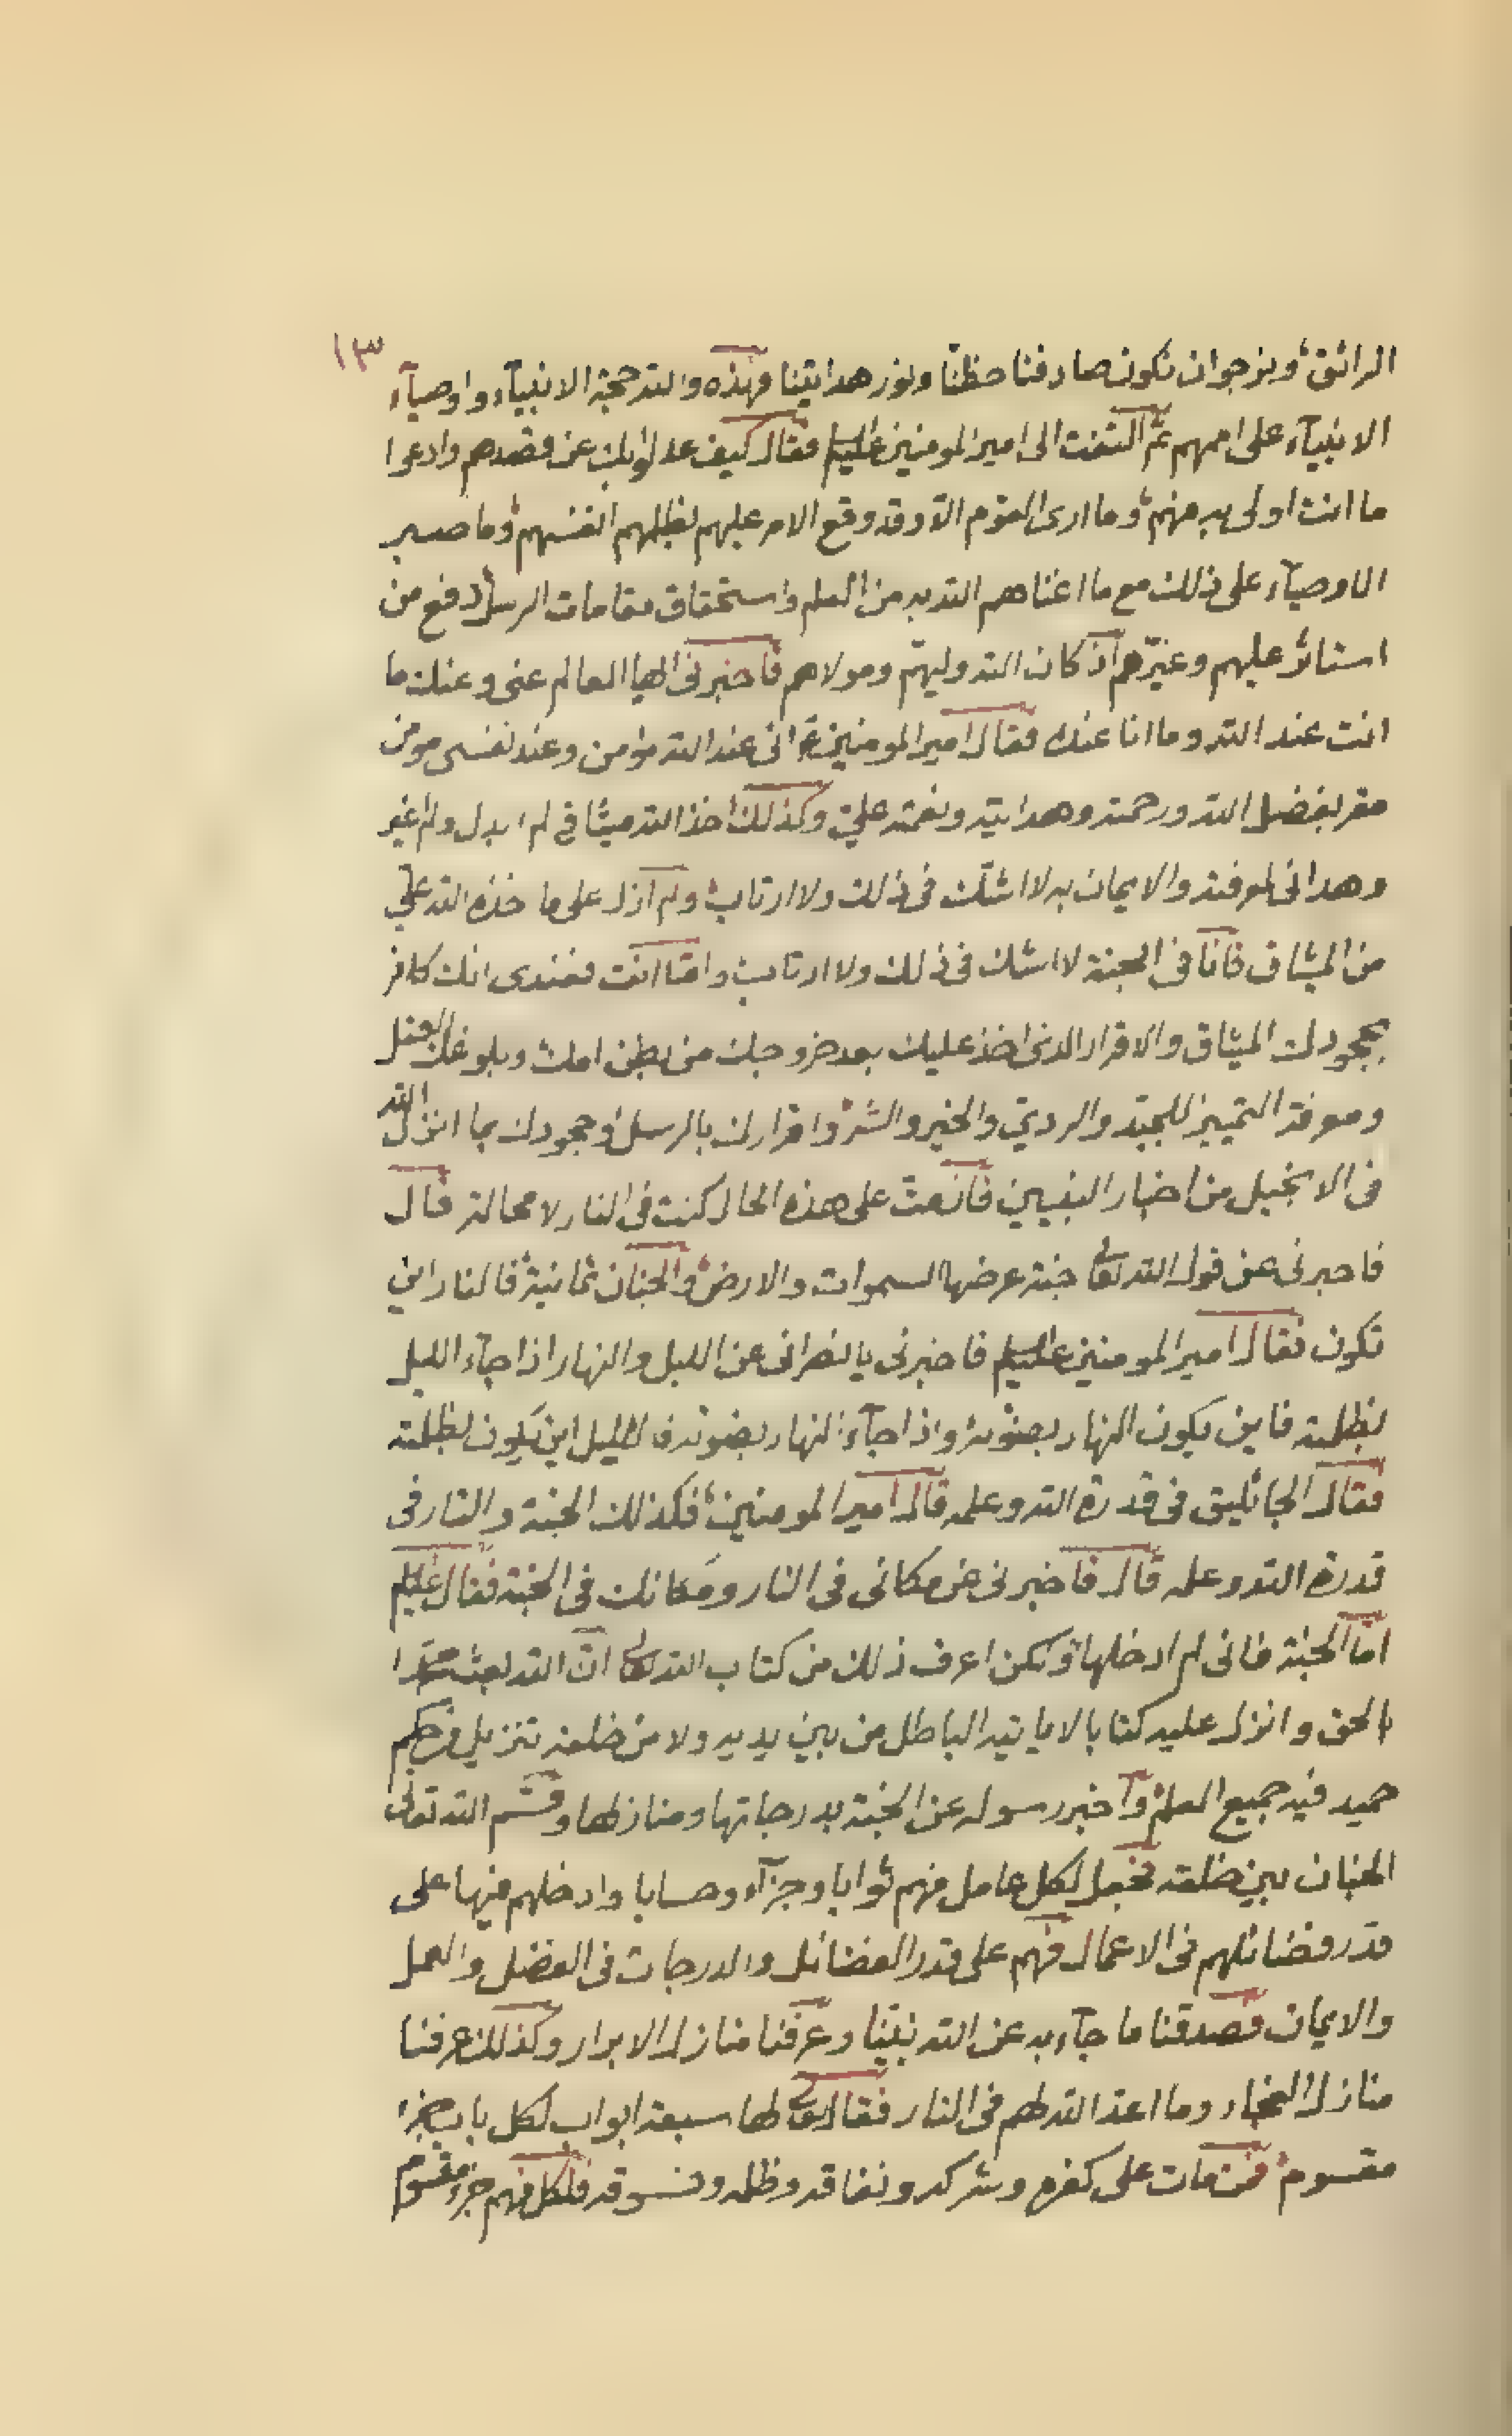 ١٣
الرائق ونرجوان نكون صادفنا حظنا ونور هدايتنا فهذه والله حجة الانبيآء واوصيآء
الانبيآء على اممهم ثم التفت الى امير المومنين عليه السلم فقال كيف عدل بك عن قصدهم وادعوا
ما انت اولى به منهم وما ارى القوم الا وقد وقع الامر عليهم بظلمهم انفسهم وما صبر
الاوصيآء على ذلك مع ما اغناهم الله به من العلم واستحقاق مقامات الرسل دفع من
استاثر عليهم وغيرهم اذ كان الله وليهم ومولاهم فاخبرنى ايها العالم عنى وعنك ما
انت عند الله وما انا عنده فقال امير المومنين ع انى عند الله مؤمن وعند نفسى مومن
مقر بفضل الله ورحمته وهدايته ونعمته على وكذلك اخذ الله ميثاقى لم ابدل ولم اغير
وهدانى لمعرفته والايمان به لا اشك فى ذلك ولا ارتاب ولم ازل على ما اخذه الله على
من الميثاق فانا فى الجنة لا اشك فى ذلك ولا ارتاب واما انت فعندى انك كافر
بجحودك الميثاق والاقرار الذى اخذ عليك بعد خروجك من بطن امك وبلوغك العقل
ومعرفة التمييز للجيد والردى والخير والشر واقرارك بالرسل وجحودك بما انزل الله
فى الانجيل من اخبار النبيين فان مت على هذه الحال كنت فى النار لا محالة قال
فاخبرنى عن قول الله تعالى جنة عرضها السموات والارض والجنان ثمانية فالنار اين
تكون فقال امير المومنين عليه السلم فاخبرنى يا نصرانى عن الليل والنهار اذا جآء الليل
بظلمته فاين يكون النهار بضوئه واذا جآء النهار بضوئه فالليل اين يكون بظلمته
فقال الجاثليق فى قدرة الله وعلمه قال امير المومنين فكذلك الجنة والنار فى
قدرة الله وعلمه قال فاخبرنى عن مكانى فى النار ومكانك فى الجنة فقال عليه السلم
اما الجنة فانى لم ادخلها ولكن اعرف ذلك من كتاب الله تعالى ان الله بعث محمدا
بالحق وانزل عليه كتابا لا ياتيه الباطل من بين يديه ولا من خلفه تنزيل من حكيم
حميد فيه جميع العلم واخبر رسوله عن الجنة بدرجاتها ومنازلها وقسم الله تعالى
الجنان بين خلقه فجعل لكل عامل منهم ثوابا وجزآء وحسابا وادخلهم فيها على
قدر فضائلهم فى الاعمال فهم على قدر الفضائل والدرجات فى الفضل والعمل
والايمان فصدقنا ما جآء به عن الله نبينا وعرفنا منازل الابرار وكذلك عرفنا
منازل الفجار وما اعد الله لهم فى النار فقال تعالى لها سبعة ابواب لكل باب جزء
مقسوم فمن مات على كفره وشركه ونفاقه وظلمه وفسوقه فلكل منهم جزء مقسوم